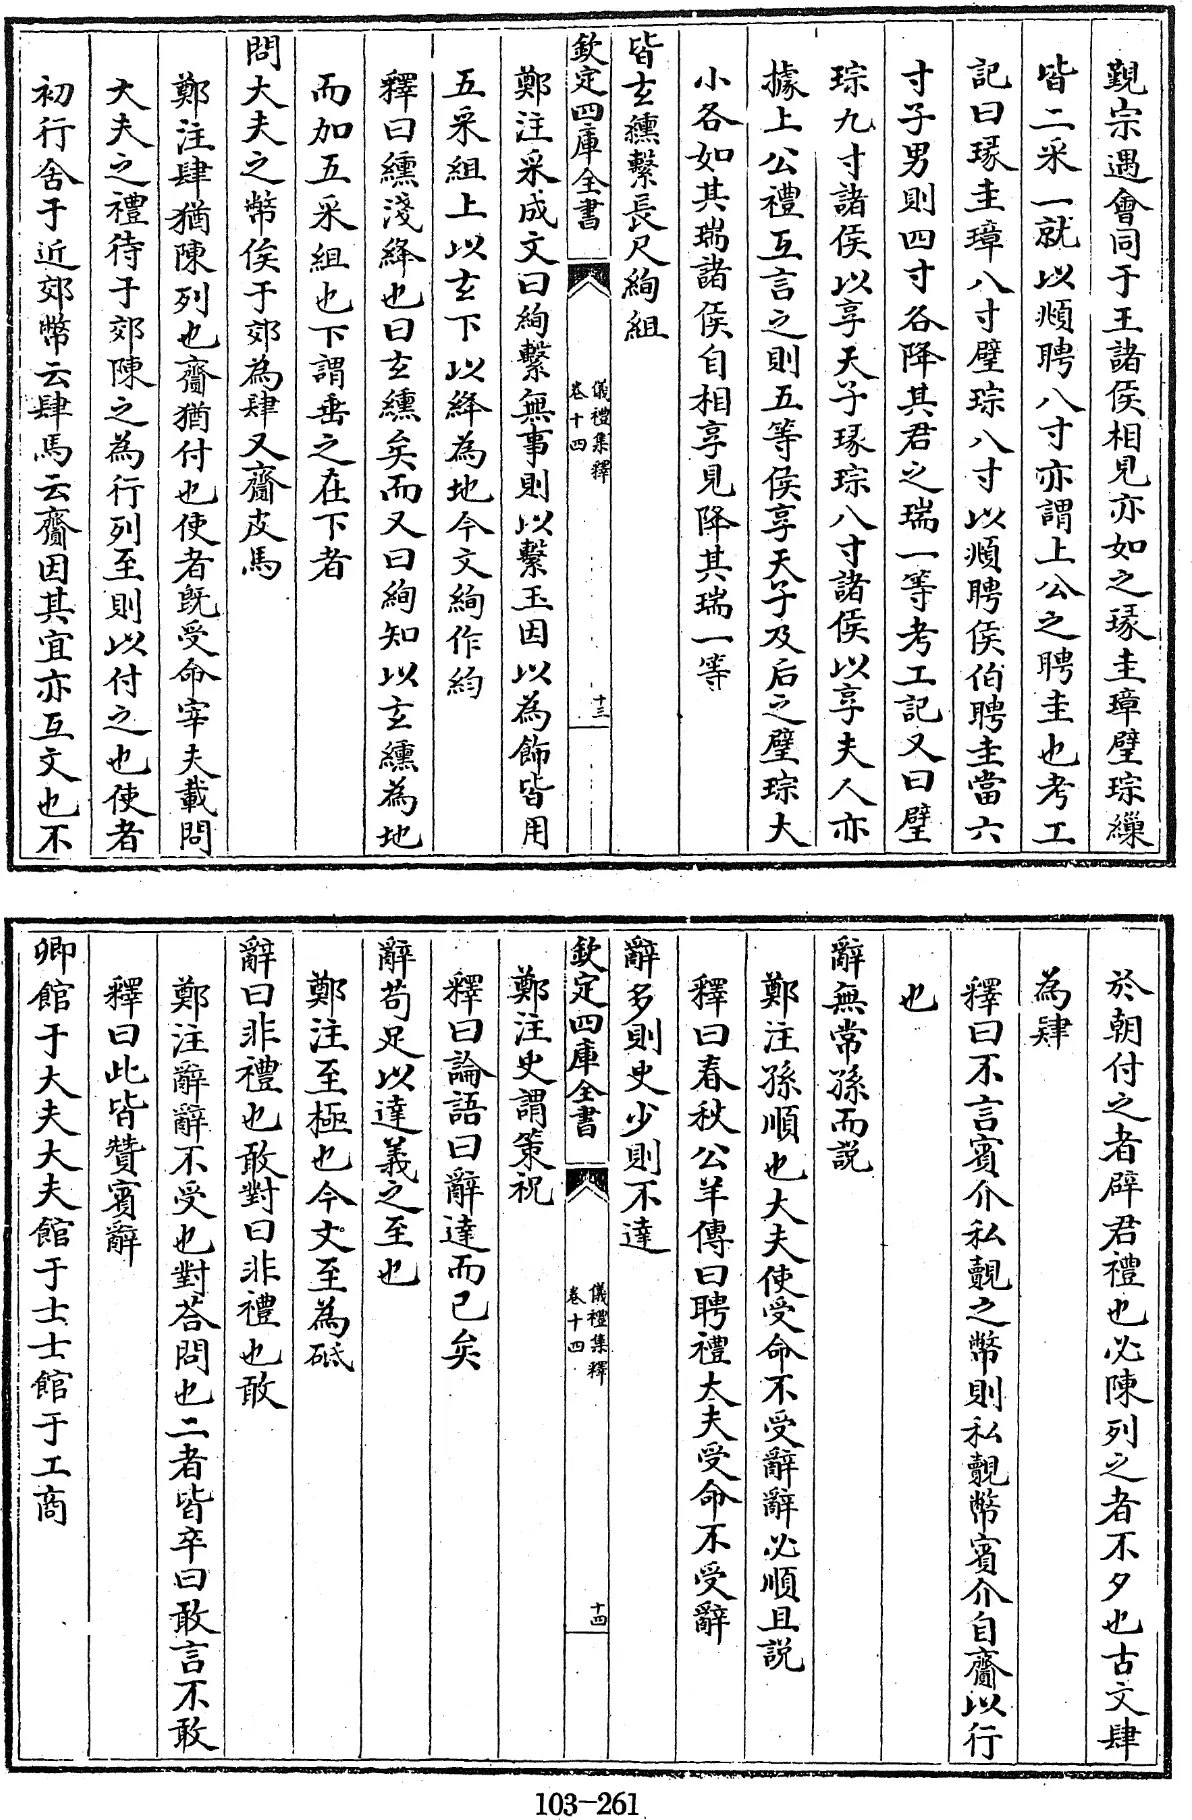 覲宗遇會同于王諸侯相見亦如之瑑圭璋璧琮繅
皆二采一就以覜聘八寸亦謂上公之聘圭也考工
記曰瑑圭璋八寸璧琮八寸以覜聘侯伯聘圭當六
寸子男則四寸各降其君之瑞一等考工記又曰璧
琮九寸諸侯以享天子瑑琮八寸諸侯以享夫人亦
據上公禮互言之則五等侯享天子及后之璧琮大
小各如其瑞諸侯自相享見降其瑞一等
皆玄纁繫長尺絢組
欽定四庫全書
儀禮集釋
卷十四
十三
鄭注采成文曰絢繫無事則以繫玉因以為飾皆用
五采組上以玄下以絳為地今文絢作約
釋曰纁淺絳也曰玄纁矣而又曰絢知以玄纁為地
而加五采組也下謂垂之在下者
問大夫之幣俟于郊為肆又齎皮馬
鄭注肆猶陳列也齎猶付也使者既受命宰夫載問
大夫之禮待于郊陳之為行列至則以付之也使者
初行舍于近郊幣云肆馬云齎因其宜亦互文也不
於朝付之者辟君禮也必陳列之者不夕也古文肆
為肄
釋曰不言賓介私覿之幣則私覿幣賓介自齎以行
也
辭無常孫而説
鄭注孫順也大夫使受命不受辭辭必順且説
釋曰春秋公羊傳曰聘禮大夫受命不受辭
辭多則史少則不達
欽定四庫全書
儀禮集釋
卷十四
十四
鄭注史謂策祝
釋曰論語曰辭達而已矣
辭苟足以達義之至也
鄭注至極也今文至為砥
辭曰非禮也敢對曰非禮也敢
鄭注辭辭不受也對荅問也二者皆卒曰敢言不敢
釋曰此皆贊賓辭
卿館于大夫大夫館于士士館于工商
103-261